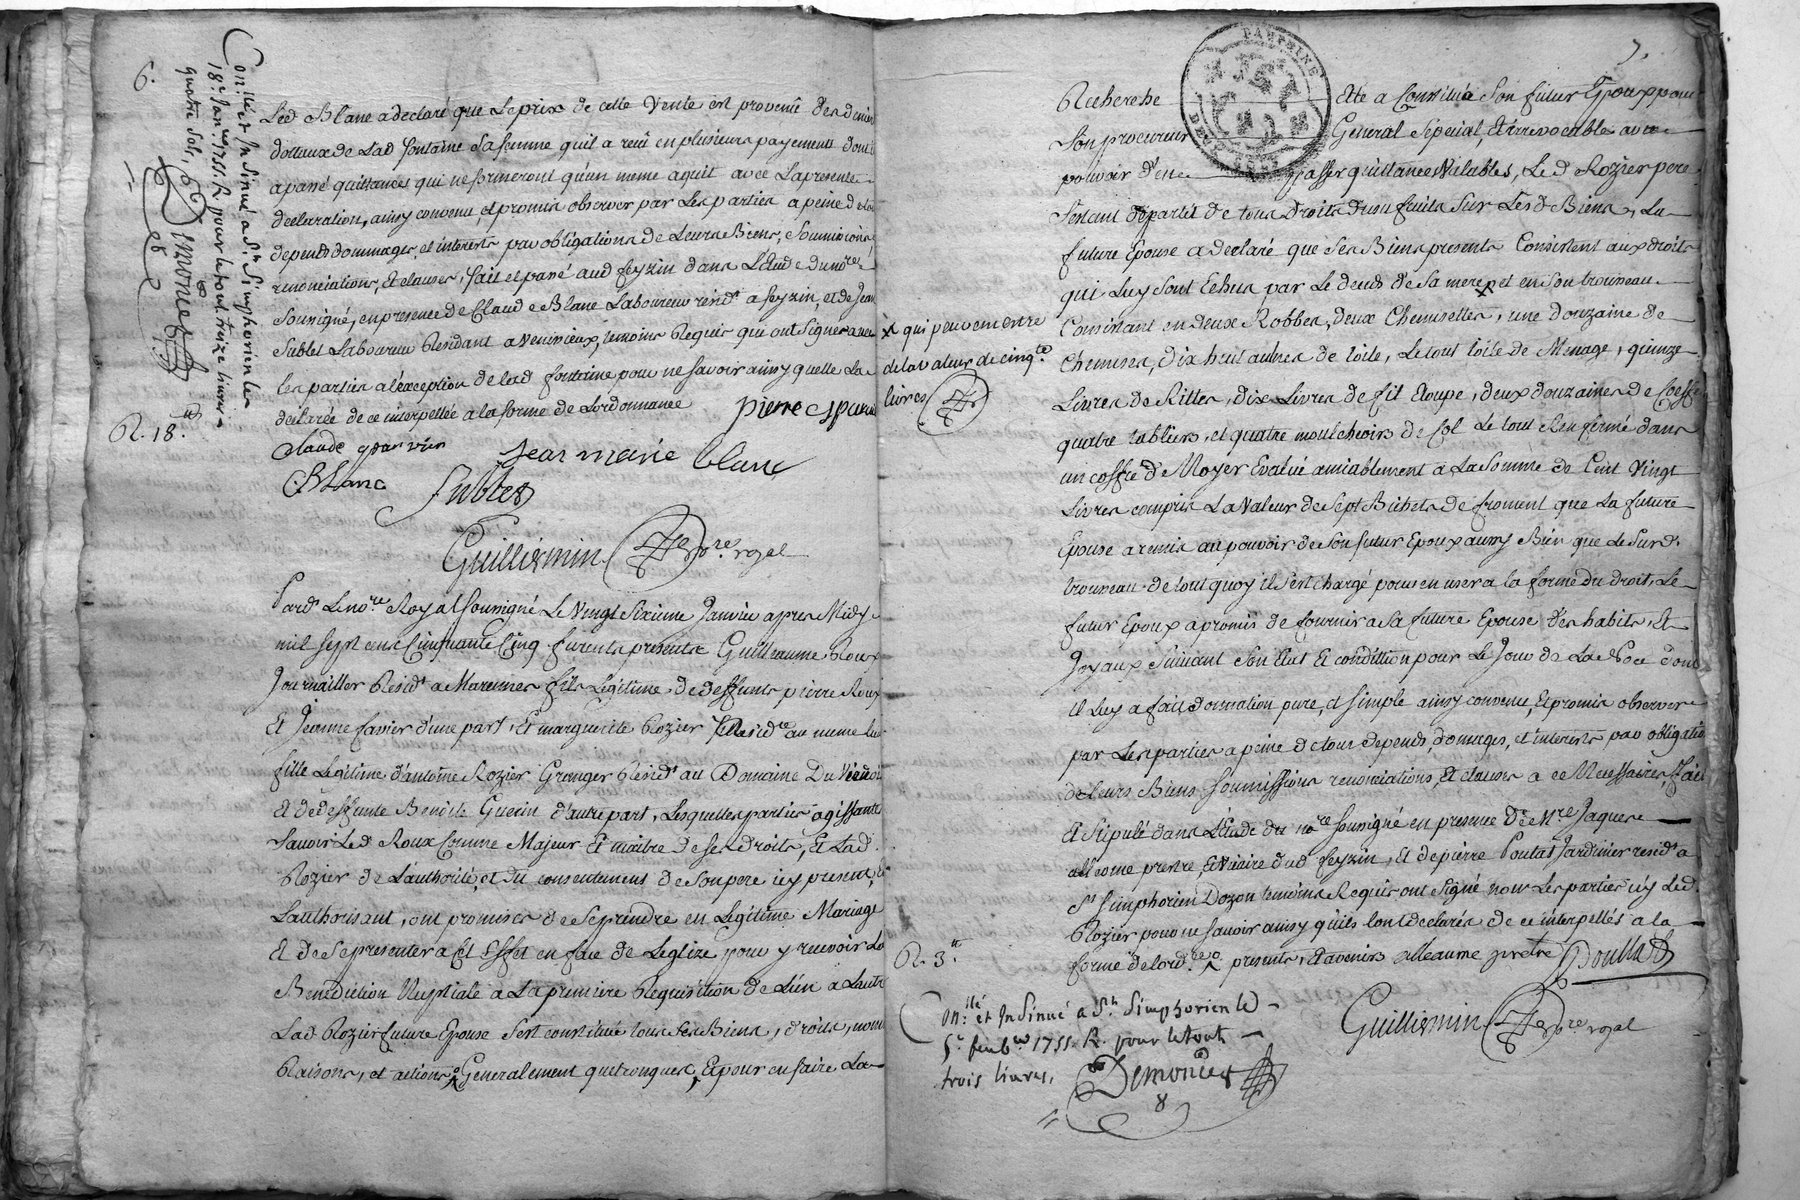 6.
Con.llé et Insinué a St. Simphorien le
18e. Janer. 1755. R. pour le tout treize livres
quatre sols,
Demoncel
R. 18.tt
Led Blanc a declaré que le prix de cette Vente est provenû des deniers
dottaux de Lad fontaine sa femme quil a reçû en plusieurs payements dont il
a passé quittances qui ne formeront qu'un meme aquit avec la presente
declaration, ainsy convenu et promis observer par les parties a peine de tous
depends dommages, et interests par obligations de leurs Biens, soumissions,
renonciations, et clauses, fait et passé aud feyzin dans L'Etude du nore
soussigné, en presence de Claude Blanc Laboureur residt a feyzin, et de Jean
Sublet Laboureur Residant a Venissieux, temoins Requis qui ont signé avec
les parties a l'exception de lad fontaine pour ne savoir ainsy quelle la
declarée de ce interpellée a la forme de Lordonnance
pierre
Claude
Jean marie blanc
CBlanc
Sublet
Guillermin nore. royal
Pardt Le nore Royal soussigné Le Vingt sixieme Janvier apres Midy
mil sept cens Cinquante Cinq furents presents Guilleaume Roux
Journailler Residt a Marennes fils Legitime de deffunts pierre Roux
Et Jeanne favier d'une part, Et marguerite Rozier Residte au meme lieu
fille Legitime d'antoine Rozier Granger Residt au Domaine Du
Et de deffunte Benoite Guerin d'autre part, Lesquelles parties agissants
savoir Led Roux Comme Majeur Et maitre de ses Droits, Et Lad
Rozier de L'authorité, et du consentement de son pere icy present,
Lauthorisant, ont promises de se prendre en Legitime Mariage
Et de se presenter a cet Effet en face de Leglize pour y recevoir La
Benediction Nuptiale a La premiere Requisition de L'un a Lautre
Lad Rozier future Epouse s'est constituée tous ses Biens, droits, noms
Raisons, et actions Generalement quelconques, Et pour en faire La
7.
Recherche Elle a Constitué son futur Epoux pour
son procureur General special, Et irrevocable avec
pouvoir d'en passer quittances Valables, Le d Rozier pere
s'etant départit de tous Droits dusufruits sur Lesd Biens, La
future Epouse a declaré que ses Biens presents Consistent aux droits
qui Luy sont Echus par Le deceds de sa mere x et en son trousseau
Consistant en deux Robbes, deux Chemisettes, une douzaine de
Chemises, dix huit aulnes de toile, Le tout toile de Menage, quinze
Livres de Rittes, dix Livres de fil Etoupe, deux douzaines de Coeffes
quatre tabliers, et quatre mouchoirs de Col Le tout Renfermé dans
un coffre de Noyer Evalué amiablement a La somme de Cent Vingt
Livres compris La Valeur de sept Bichets de froment que La future
Epouse a remis au pouvoir de son futur Epoux ausy Bien que Le surd.
trousseau de tout quoy il s'est chargé pour en user a la forme du droit, Le
futur Epoux a promis de fournir a sa future Epouse des habits, Et
Joyaux suivant son Etat Et condittion pour Le Jour de La Noce dont
il Luy a fait donnation pure, et simple ainsy convenu, Et promis observer
par Les parties a peine de tous depends, domages, et interests par obligations
de leurs Biens soumissions renonciations, Et clauses a ce Necessaires, fait
Et Stipulé dans L'Etude du nore soussigné en presence De Mre Jaques
alleome prestre, Et Vicaire dud feyzin, Et de pierre Poulat Jardinier residt a
St Simphorien Dozon temoins Requis ont signé non Les parties ny Led
Rozier pour ne savoir ainsy quils l'ont declarés de ce interpellés a la
forme de lord.ce presents, Et avenirs alleaume prestre Poullat
Guillermin nore royal
x qui peuvent etre
de la valeur de cinq.te
livres
R. 3.tt
Con.llé et Insinué a St. Simphorien le
5e. feubr. 1755. R. pour le tout
trois livres,
Demoncel